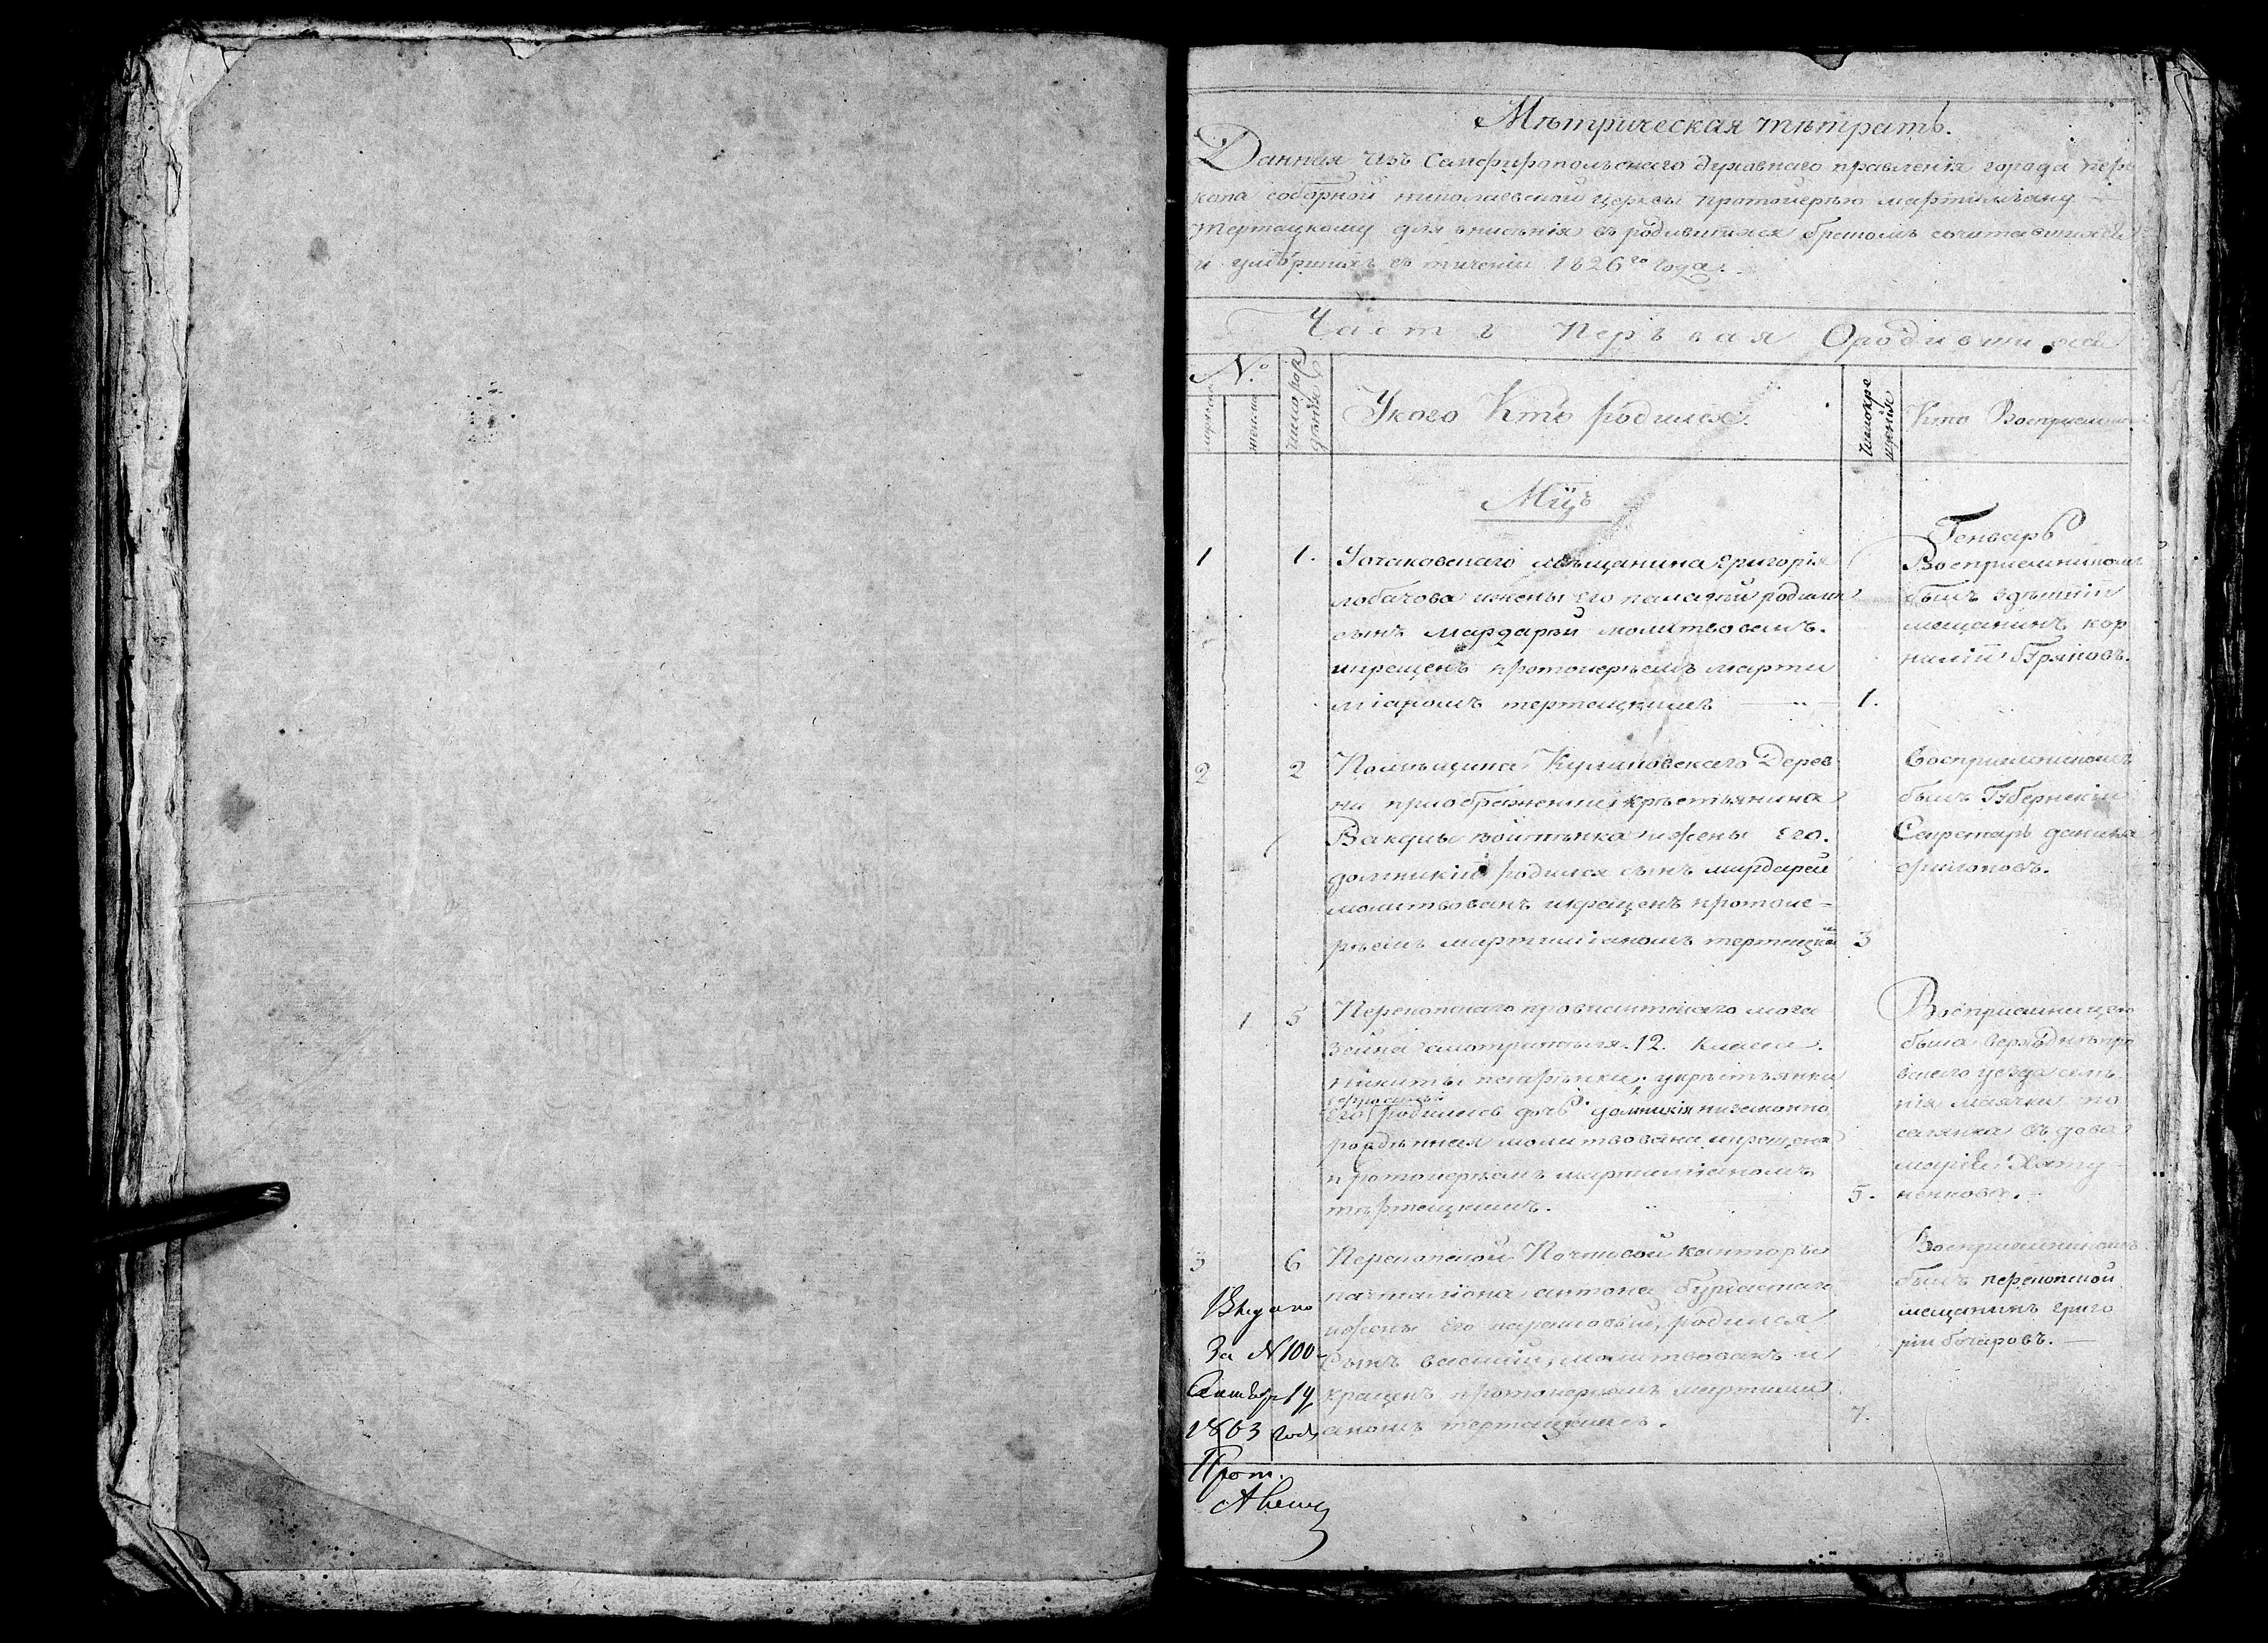 Мѣтрическая тѣтрать.
Данная изъ Симферопольскаго духовнаго правленія города пере
копа соборной николаевской церкви протоиерѣю мартиміану
тертецкому для внисѣнія въ родившихся бракомъ сочитавшихся
и умѣршихъ въ тичении 1826го года.
Часть Перъвая Ородившихся
№
число рож
денія
Укого Кто родился.
число кре
щенія
Кто Восприемник
Мцъ
Генварь
1 1. Уочаковскаго мѣщанина григорія
лобачова ижены его родился
сынъ мардарей молитвованъ.
икрещенъ протоиерѣемъ марти
міаномъ тертецкимъ 1.
Восприемникомъ
былъ здѣшній
мещанинъ кор
нилій
2 2 Помѣщика Куликовскаго Дерев
ни приображенки крѣстьянина
Вакулы войтѣнка ижены Его.
домникіи родился сынъ мардарей
молитвованъ икрещенъ протоие-
рѣемъ мартиміаномъ тертецким 3
Восприемникомъ
былъ Губернскій
Секретарь данила
филоновъ.
1 5 Перекопскаго провиантскаго мога
зейна смотрителя 12. класса.
никиты укрѣстьянки
Его родилась дочь домникія низаконно
рождѣнная молитвована икрещена
протоиерѣемъ мартиміаномъ
тѣртецкимъ. 5.
Восприемницею
была днѣпро
вского уезда селѣ
нія маячки по
селянка вдова
марія Хату
ненкова.
3 6 Перекопской Почтовой канторы
почталіона антона
ижены Его парасковьи, родился
Сынъ василій, молитвованъ и
крещенъ протоиерѣемъ мартими
аномъ тертецкимъ. 7.
Восприемникомъ
былъ перекопской
мещанинъ григо
рій бочаровъ.
Выдано
За №100
Октября 14
1863 года
Прот.